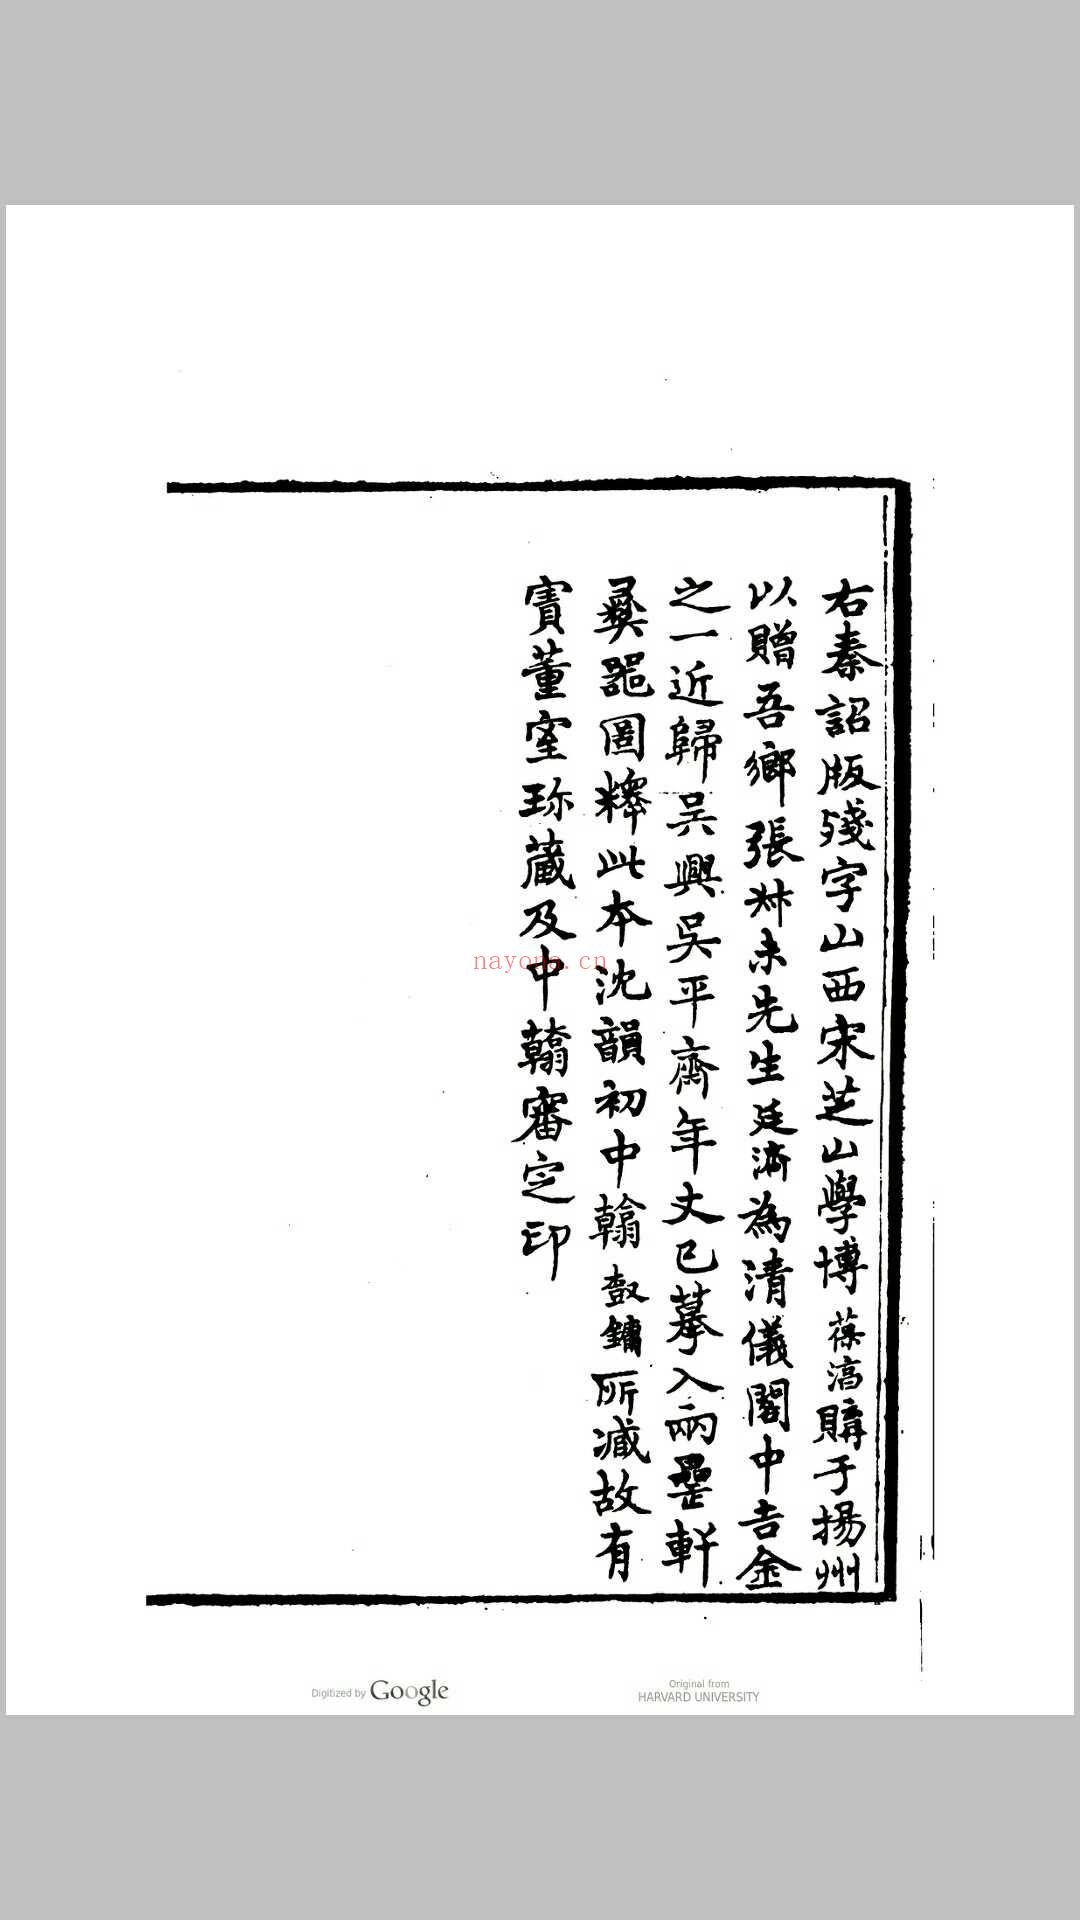 右秦詔版殘字山西宋芝山學博葆淳購于揚州
以贈吾鄉張叔未先生廷濟為清儀閣中吉金
之一近歸吳興吳平齋年丈已摹入兩罍軒
彝器圖釋此本沈韻初中翰樹鏞所臧故有
寶董室珎藏及中翰審定印
nayona.cn
Digitized by Google
Original from
HARVARD UNIVERSITY